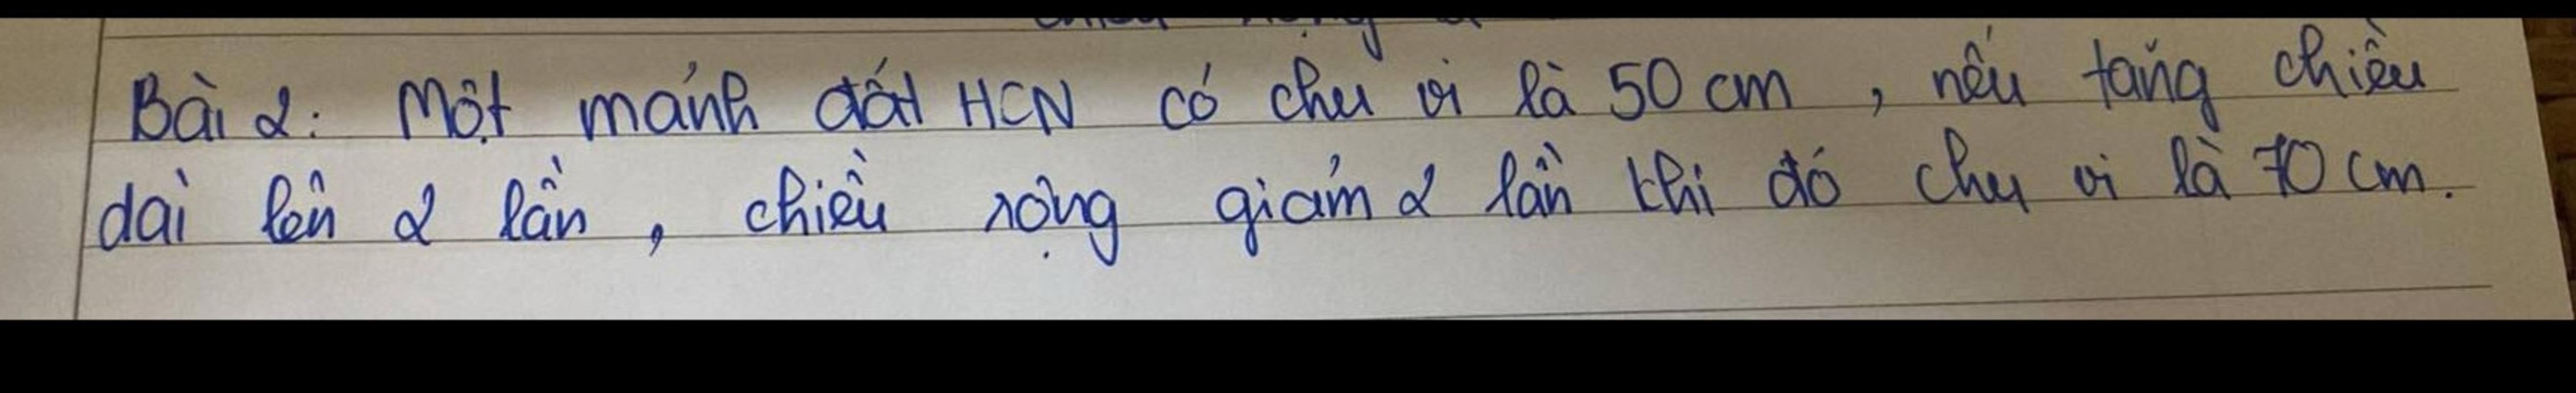 Bài 2: Một mảnh đất HCN có chu vi là 50 cm, nếu tăng chiều
dài lên 2 lần, chiều rộng giảm 2 lần thì đó chu vi là 70 cm.